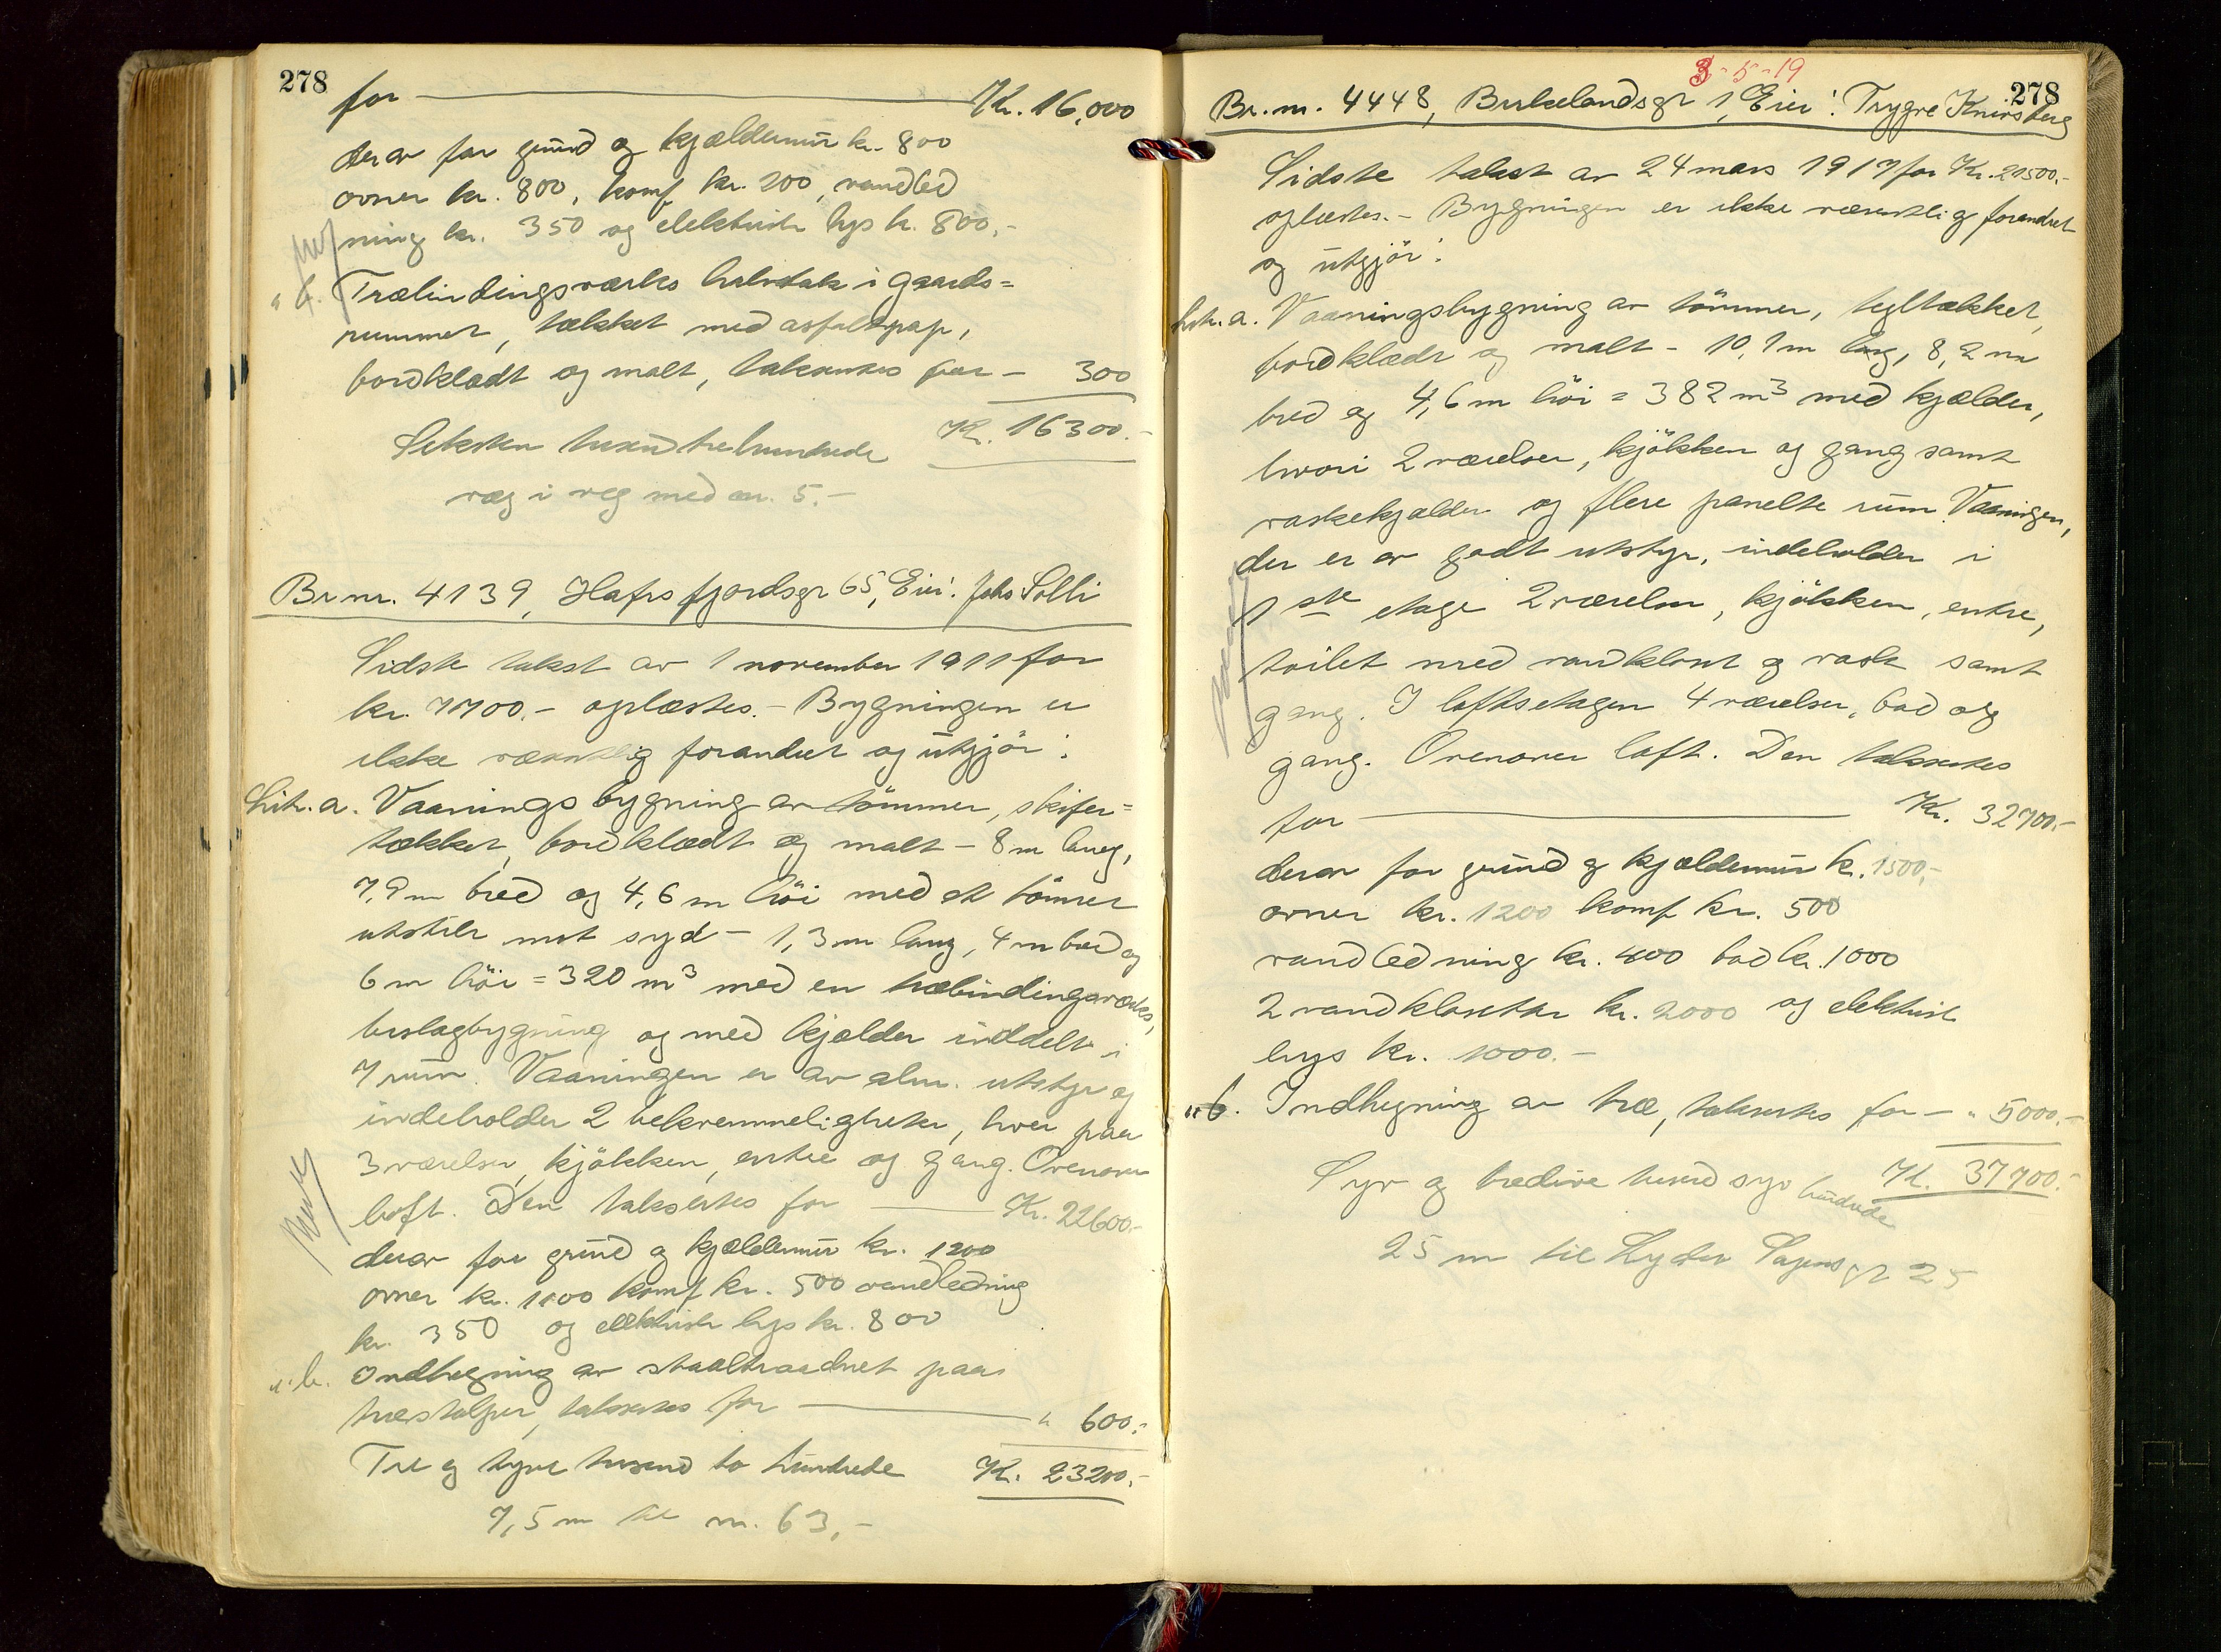 278
for — Kr. 16,000
derav for grund og kjældermur kr. 800
ovner kr. 800, komf kr. 200, vandled
ning kr. 350 og elektrisk lys kr. 800,-
" b. Træbindingsverks halvtak i gaards=
rummet, tækket med asfaltpap,
bordklædt og malt, takseres for - 300
Kr. 16300.-
Seksten tusund trehundrede
væg i væg med nr. 5.-
Br nr. 4139, Hafrsfjordsgt 65, Eier: Johs Solli
Sidste takst av 1 november 1911 for
kr. 7700.- oplæstes.- Bygningen er
ikke væsentlig forandret og utgjör:
Litr. a. Vaaningsbygning av tömmer, skifer=
tækket, bordklædt og malt - 8 m lang,
7,9 m bred og 4,6 m höi med et tömmer
utstik mot syd - 1,3 m lang, 4 m bred og
6 m höi = 320 m³ med en træbindingsverks,
beslagbygning og med kjælder inddelt i
7 rum. Vaaningen er av alm. utstyr og
indeholder 2 bekvemmeligheter, hver paa
3 værelser, kjökken, entre og gang. Ovenover
loft. Den takseres for — Kr. 22600.-
derav for grund og kjældermur kr. 1200
ovner kr. 1100 komf kr. 500 vandledning
kr. 350 og elektrisk lys kr. 800
" b. Indhegning av staaltraadnet paa
træstolper, takseres for — " 600.-
Tre og tyve tusend to hundrede Kr. 23200.-
7,5 m til nr. 63,-
3-5-19
278
Br. nr. 4448, Birkelandsgt 1, Eier: Trygve
Sidste takst av 24 mars 1917 for Kr. 21500.-
oplæstes.- Bygningen er ikke væsentlig forandret
og utgjör:
Litr. a. Vaaningsbygning av tömmer, tegltækket,
bordklædt og malt - 10,1 m lang, 8,2 m
bred og 4,6 m höi = 382 m³ med kjælder,
hvori 2 værelser, kjökken og gang samt
vaskekjælder og flere panelte rum. Vaaningen,
der er av godt utstyr, indeholder i
1ste etage 2 værelser, kjökken, entre,
toilet med vandklosset og vask samt
gang. I loftsetagen 4 værelser, bad og
gang. Ovenover loft. Den takseres
for — Kr. 32700.-
derav for grund og kjældermur kr. 1500,-
ovner kr. 1200 komf kr. 500
vandledning kr. 400 bad kr. 1000
2 vandklosetter kr. 2000 og elektrisk
lys kr. 1000.-
" b. Indhegning av træ, takseres for - " 5000.-
Syv og tredive tusind syv hundrede Kr. 37700.-
25 m til Lyder Sagens gt 25